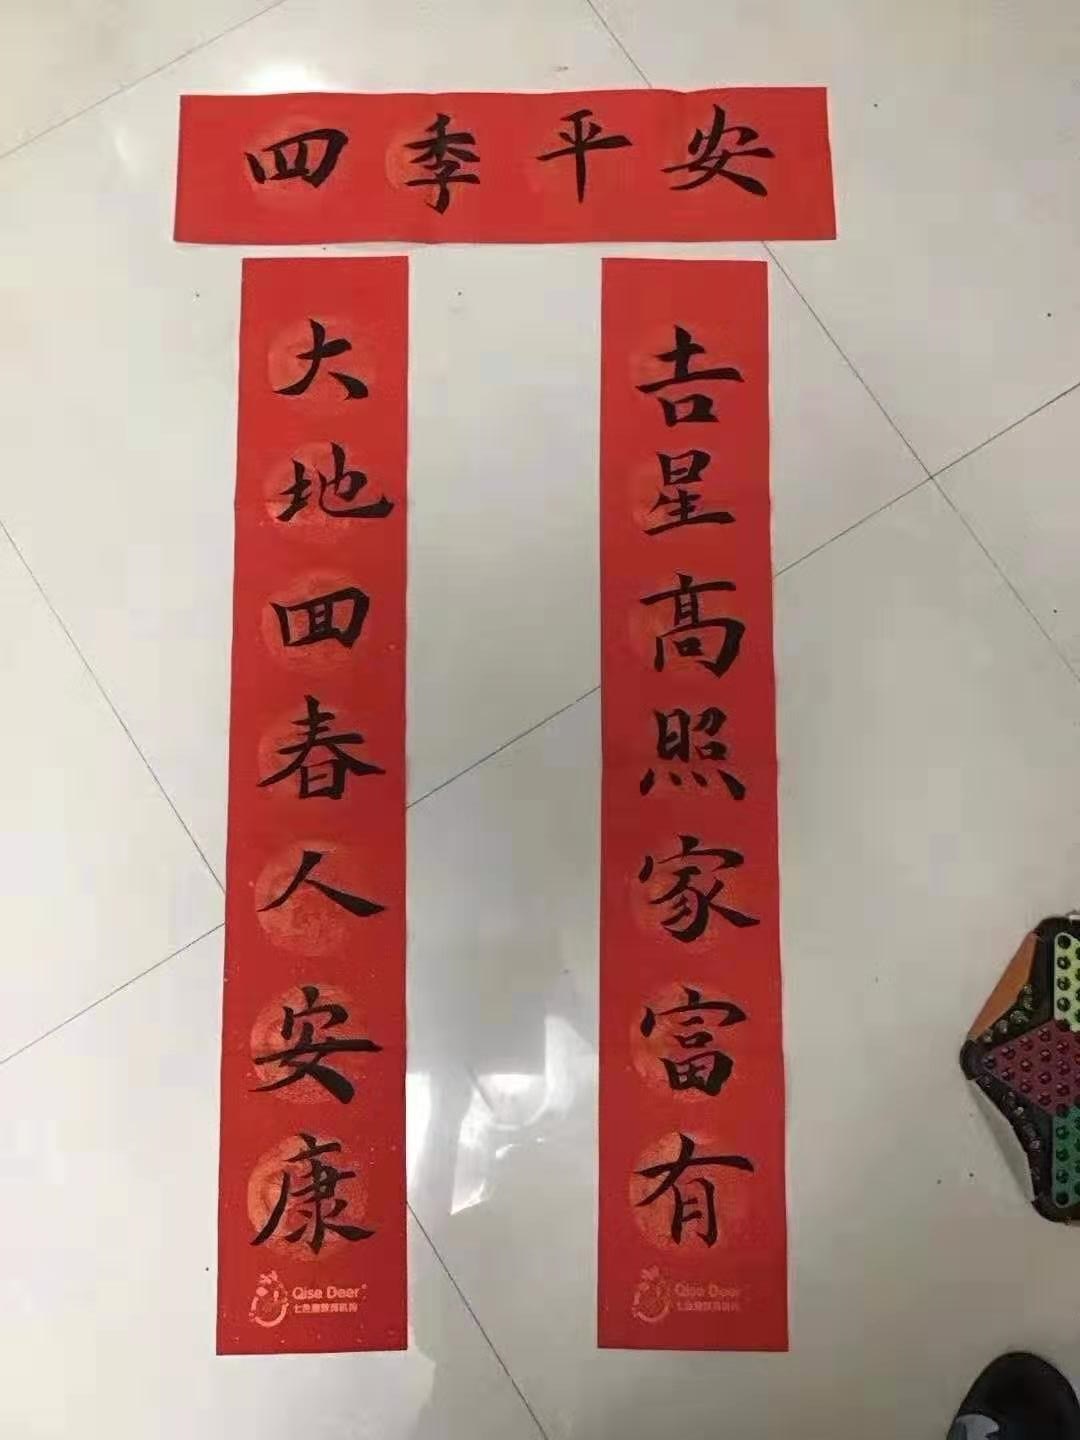 四季平安
大地回春人安康
吉星高照家富有
Qise Deer
七色鹿教育机构
Qise Deer
七色鹿教育机构